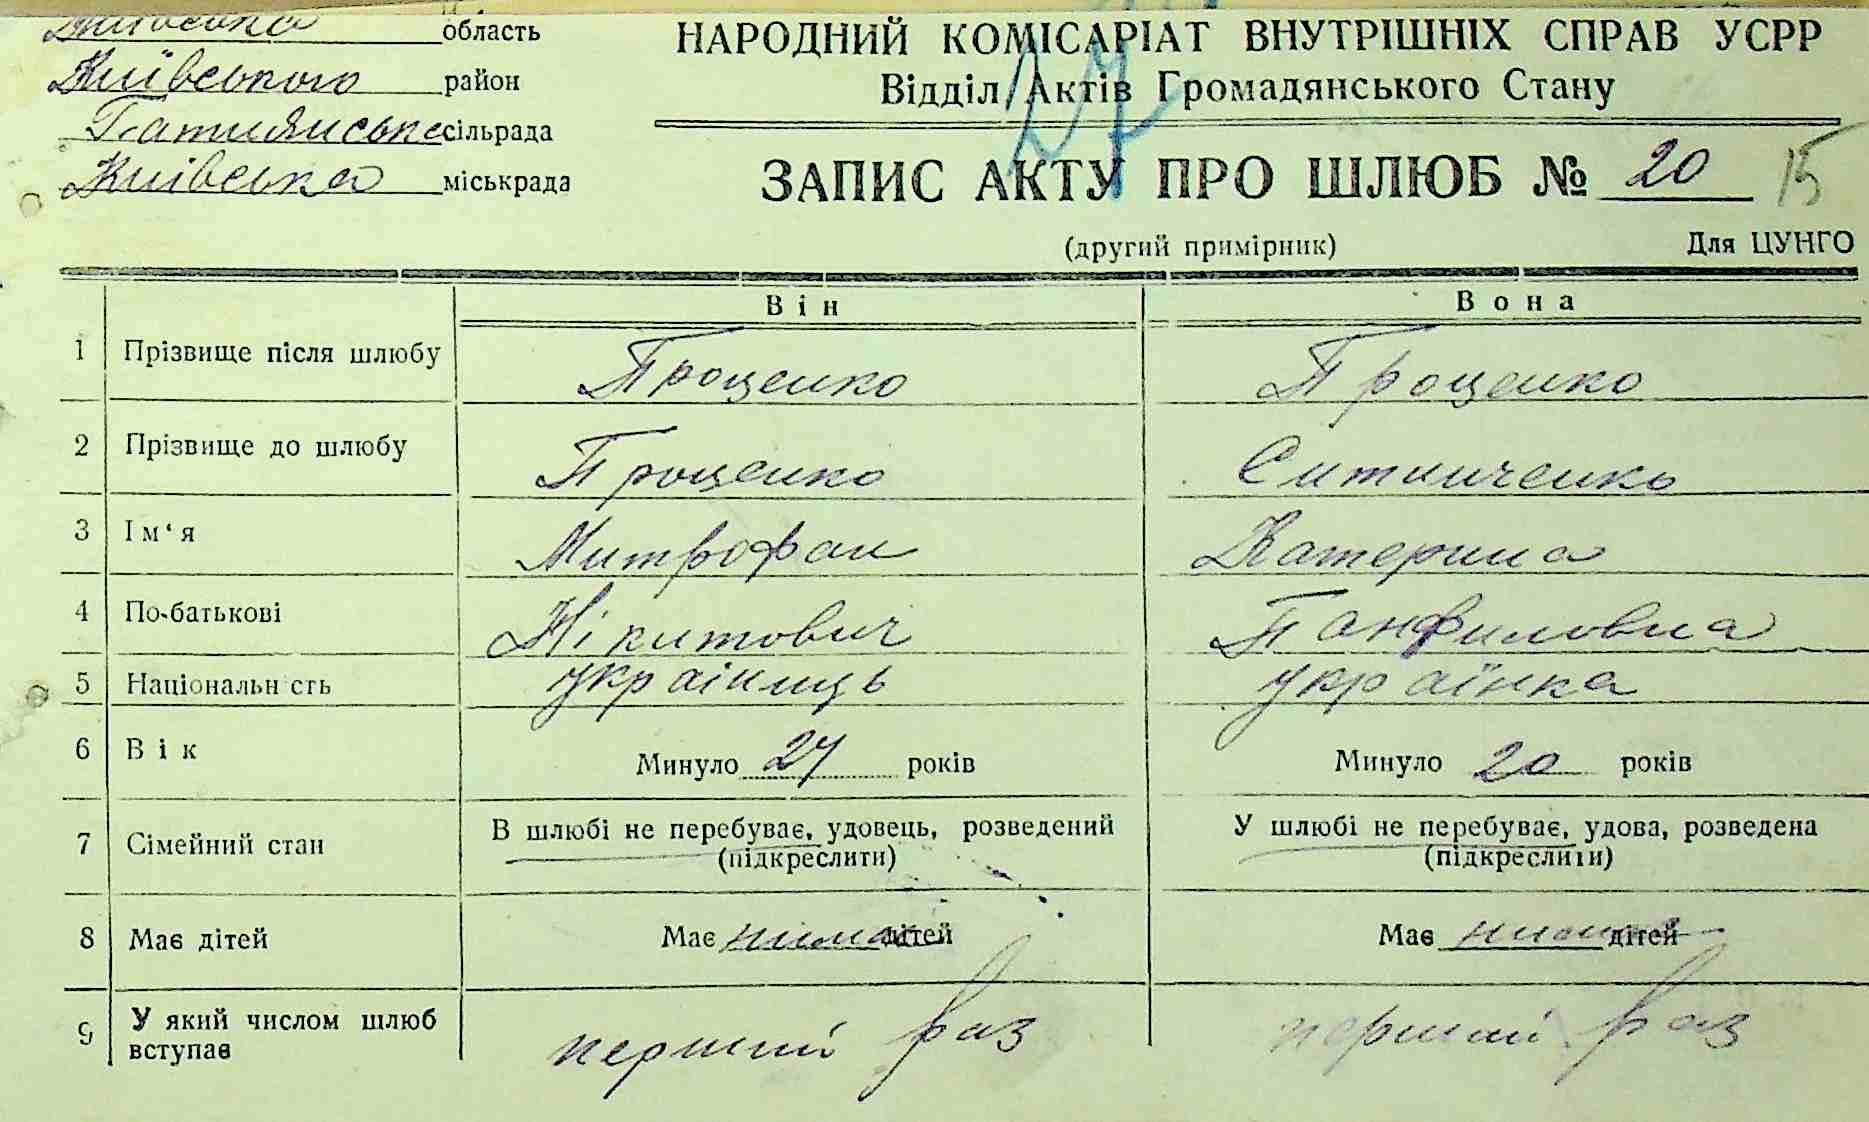 Київська область
Київського район
сільрада
Київська міськрада
НАРОДНИЙ КОМІСАРІАТ ВНУТРІШНІХ СПРАВ УСРР
Відділ Актів Громадянського Стану
27
ЗАПИС АКТУ ПРО ШЛЮБ № 20 15
(другий примірник) Для ЦУНГО
Він Вона
1 Прізвище після шлюбу Проценко Проценко
2 Прізвище до шлюбу Проценко Ситниченко
3 Ім‘я Митрофан Катерина
4 По-батькові Нікитович Панфиловна
5 Національн сть українць українка
6 Вік Минуло 27 років Минуло 20 років
7 Сімейний стан В шлюбі не перебуває, удовець, розведений У шлюбі не перебуває, удова, розведена
(підкреслити) (підкреслити)
8 Має дітей Має нима дітей Має нима дітей
9 У який числом шлюб вступає перший раз перший раз